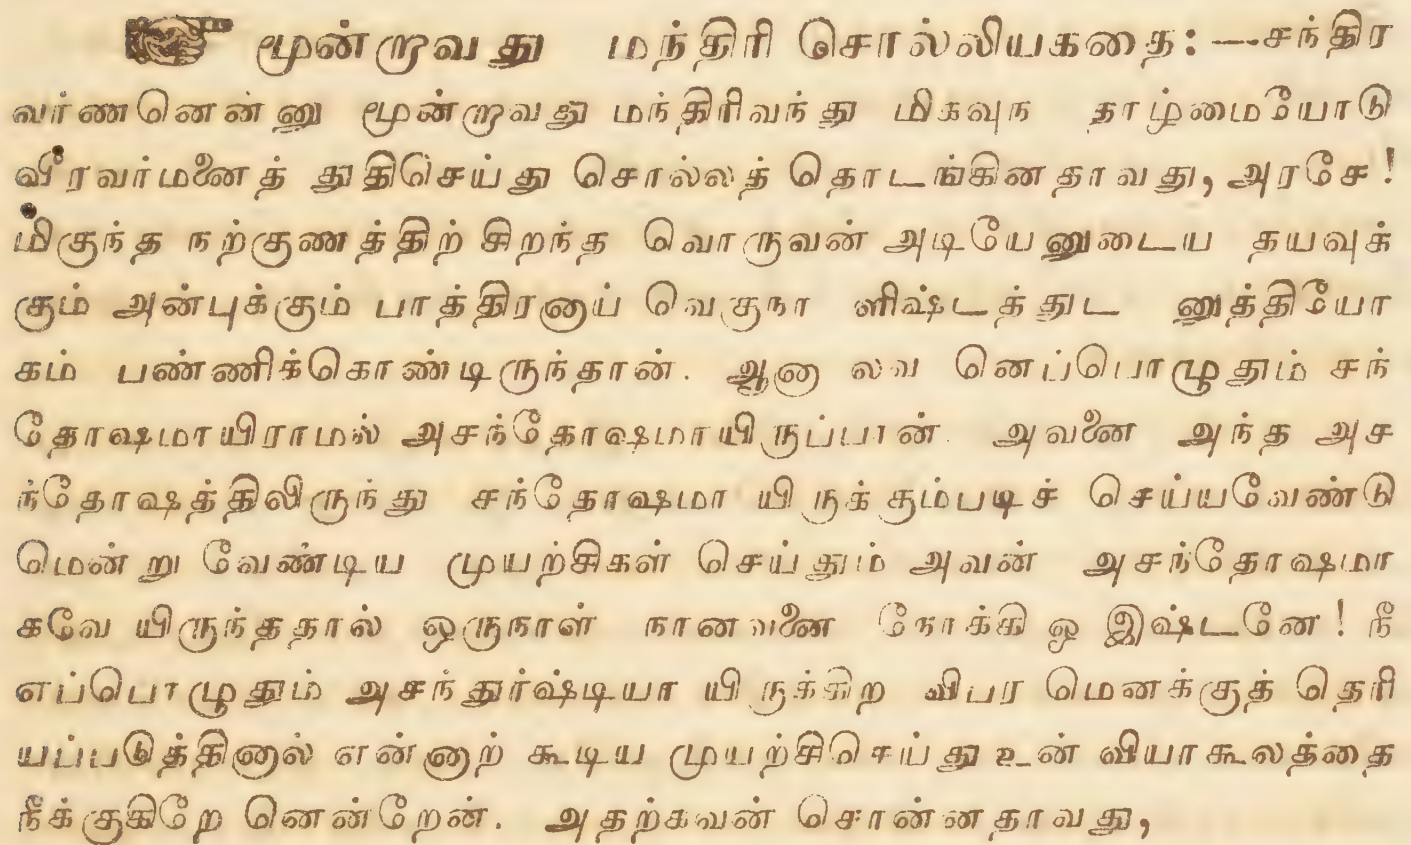 ☞ மூன்றாவது மந்திரி சொல்லியகதை:—சந்திர
வர்ணனென்னு மூன்றாவது மந்திரிவந்து மிகவுந தாழ்மையோடு
வீரவர்மனைத் துதிசெய்து சொல்லத் தொடங்கினதாவது, அரசே!
மிகுந்த நற்குணத்திற் சிறந்த வொருவன் அடியேனுடைய தயவுக்
கும் அன்புக்கும் பாத்திரனாய் வெகுநா ளிஷ்டத்துட னுத்தியோ
கம் பண்ணிக்கொண்டிருந்தான். ஆனா லவ னெப்பொழுதும் சந்
தோஷமாயிராமல் அசந்தோஷமாயிருப்பான். அவனை அந்த அச
ந்தோஷத்திலிருந்து சந்தோஷமா யிருக்கும்படிச் செய்யவேண்டு
மென்று வேண்டிய முயற்சிகள் செய்தும் அவன் அசந்தோஷமா
கவே யிருந்ததால் ஒருநாள் நானவனை நோக்கி ஓ இஷ்டனே! நீ
எப்பொழுதும் அசந்துர்ஷ்டியா யிருக்கிற விபர மெனக்குத் தெரி
யப்படுத்தினால் என்னாற் கூடிய முயற்சிசெய்து உன் வியாகூலத்தை
நீக்குகிறே னென்றேன். அதற்கவன் சொன்னதாவது,